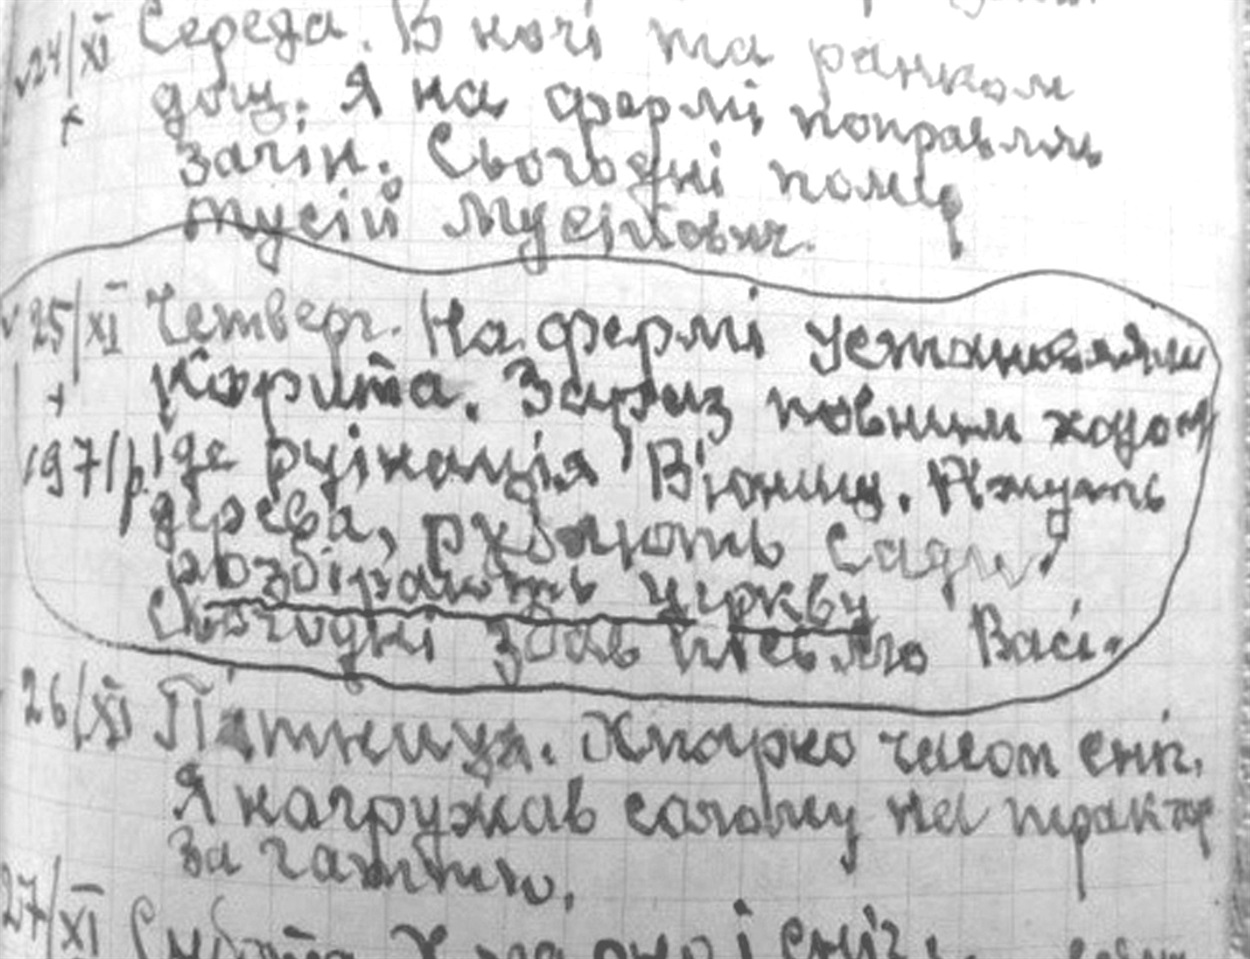 24/XI Середа. В ночі та ранком
дощ. Я на фермі поправляв
загін. Сьогодні помер
Мусій Мусійович.
25/XI Четверг. На фермі установляли
Корита. Зараз повним ходом
1971р. іде руінація Вьюнищ. Ріжуть
дерева, рубають сади,
розбірають церкву
Сьогодні здав пісьмо Васі.
26/XI Пятниця. Хмарко часом сніг.
Я нагружав солому на трактор
за гаттю.
27/XI Субота Хмарно і сніг.